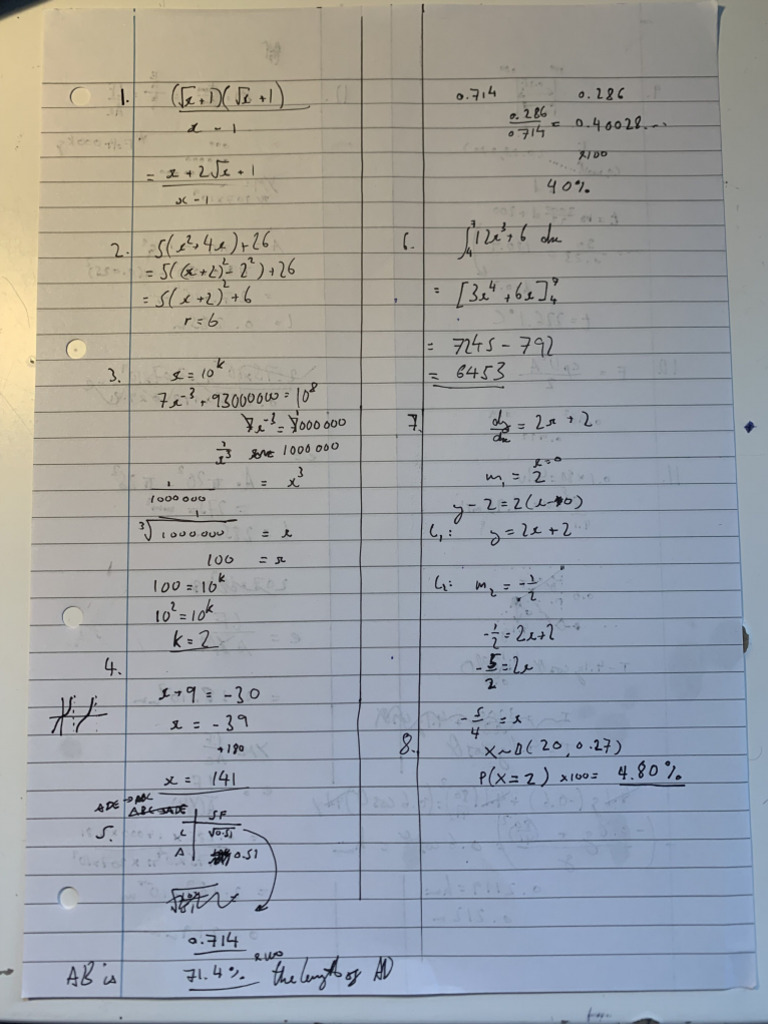 1. (√x+1)(√x+1)
x - 1
= x + 2√x + 1
x - 1
2. 5(x²+4x)+26
= 5((x+2)²-2²)+26
= 5(x+2)²+6
r = 6
3. x = 10^k
7x⁻³ + 93000000 = 10⁸
7x⁻³ = 7000000
1/x³ 1000000
1/1000000 = x³
³√(1/1000000) = x
100 = x
100 = 10^k
10² = 10^k
k = 2
4.
x+9 = -30
x = -39
+180
x = 141
ADE → ABC
5. SF
L √0.51
A 0.51
0.714
×100
71.4%
AB is the length of AD
0.714 0.286
0.286/0.714 = 0.40028...
×100
40%
6. ∫₄⁷ 12x³+6 dx
= [3x⁴+6x]₄⁷
= 7245 - 792
= 6453
7. dy/dx = 2x+2
x=0
m₁ = 2
y-2 = 2(x-0)
L₁: y = 2x+2
L₂: m₂ = -1/2
-1/2 = 2x+2
-5/2 = 2x
-5/4 = x
8. X~B(20, 0.27)
P(X=2) ×100 = 4.80%